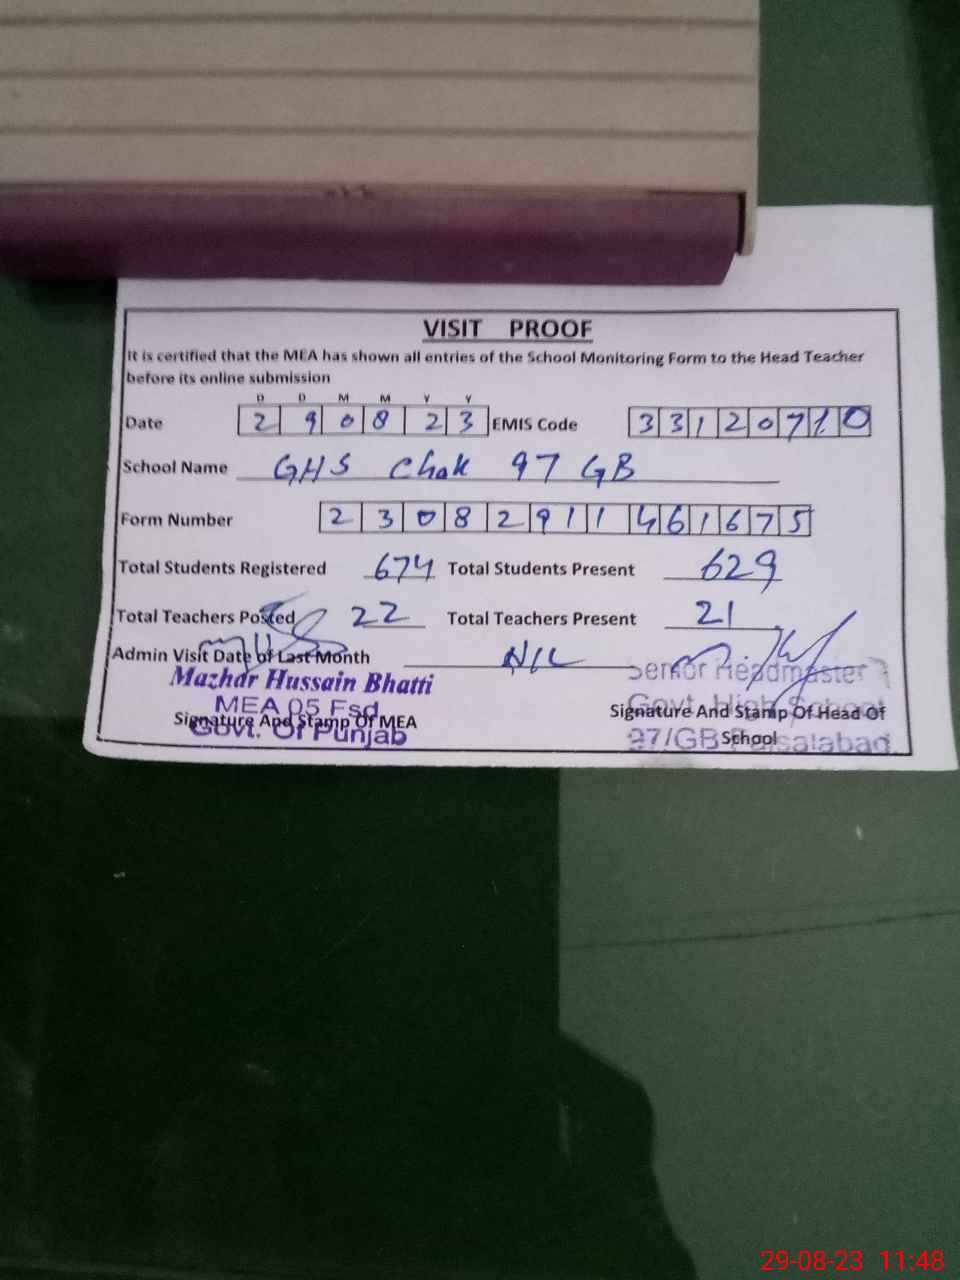 VISIT PROOF
It is certified that the MEA has shown all entries of the School Monitoring Form to the Head Teacher
before its online submission
D D M M Y Y
Date 2 9 0 8 2 3 EMIS Code 3 3 1 2 0 7 1 0
School Name GHS Chak 97 GB
Form Number 2 3 0 8 2 9 1 1 4 6 1 6 7 5
Total Students Registered 674 Total Students Present 629
Total Teachers Posted 22 Total Teachers Present 21
Admin Visit Date of Last Month NIL
Mazhar Hussain Bhatti
MEA 05 Fsd
Govt. Of Punjab
Signature And Stamp Of MEA
Senior Headmaster
Govt. High School
97/GB Faisalabad
Signature And Stamp Of Head Of
School
29-08-23 11:48